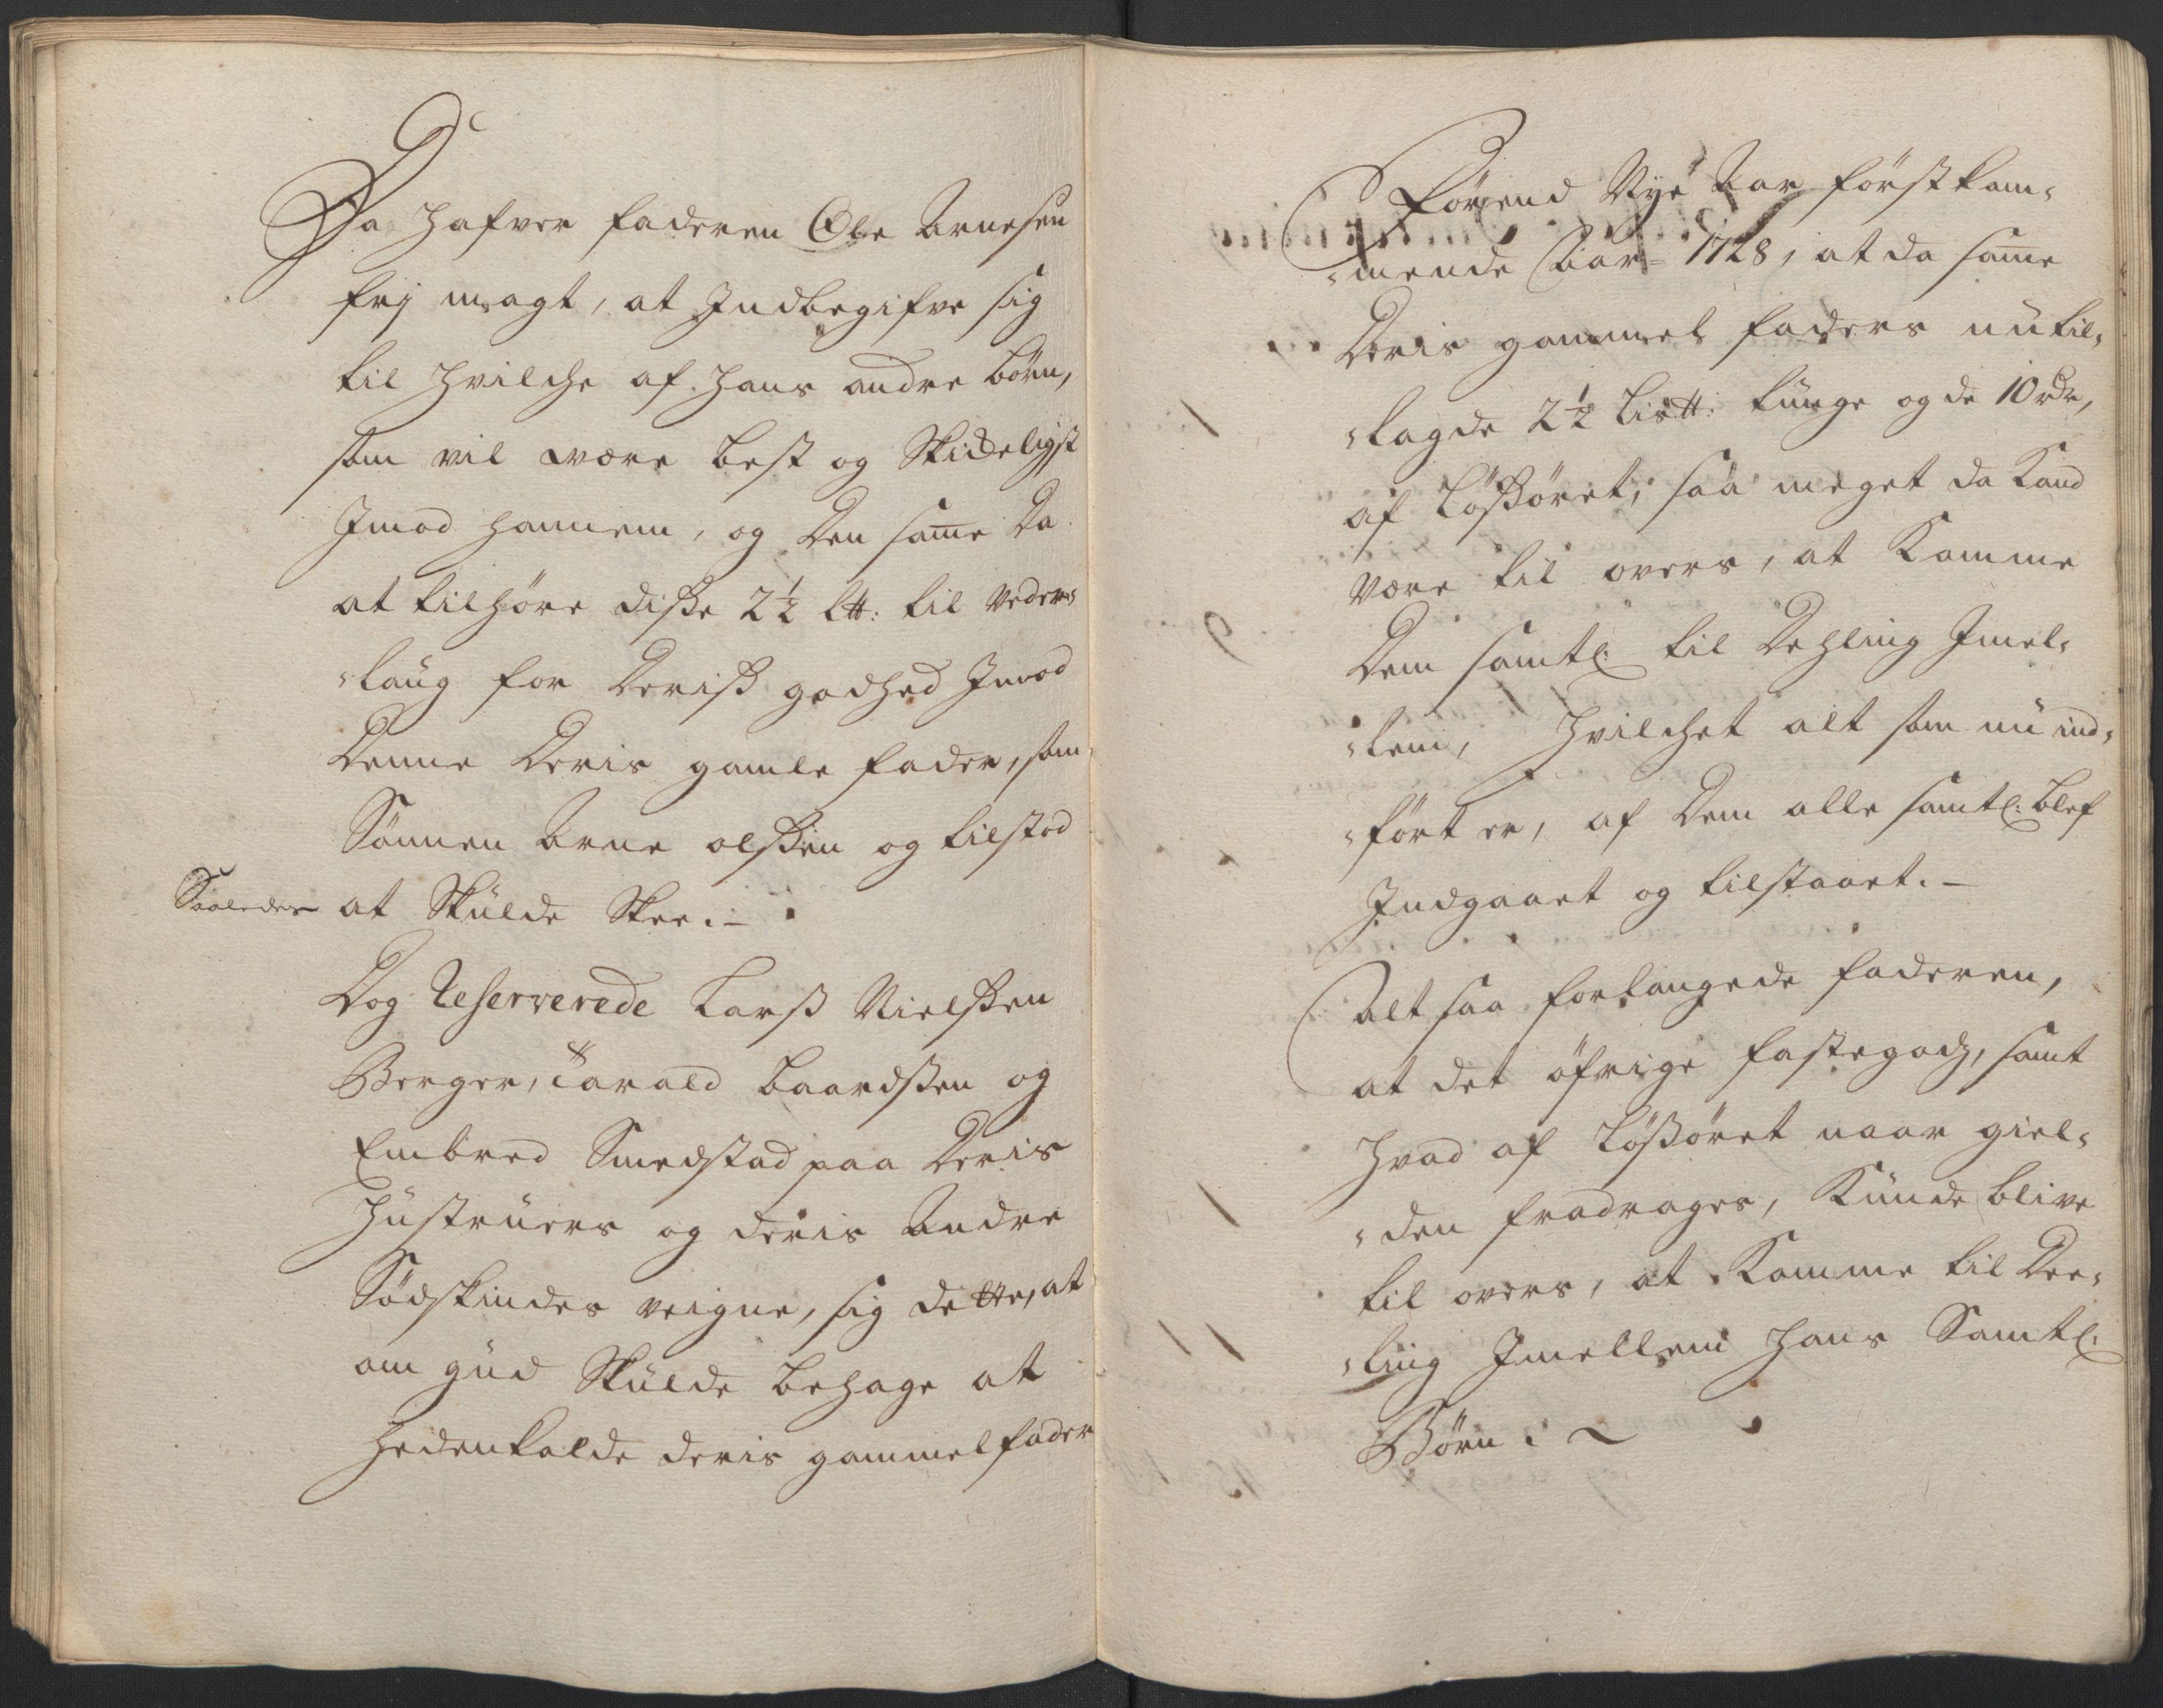 Da hafver faderen Ole Arnesen
frj magt, at Indbegifve sig
til hvilche af hans andre börn,
som vil være best og Skicheligst
Imod hannem, og den same da
at tilhöre diße 2½ l℔: til veder-
-laug for deriß godhed Imod
denne deris gamle fader, som
Sönnen Arne olßen og tilstod
Saaledes at Skulde Skee. -
Dog Reserverede Larß Nielßen
Berger, Tarald baardßen og
Embred Smedstad paa deris
hustruers og deris andre
Södskindes veigne, sig dette, at
om gud Skulde behage at
hedenkalde deris gammel fader
förend Nye Aar förstkom-
-mende Aar 1728, at da same
deris gammel faders nu til-
-lagde 2½ lis℔: tunge og de 10 rdr,
af lößöret, saa meget da Kand
være til overs, at Komme
dem samtl: til dehling Imel-
-lem, hvilchet alt som nu ind-
-fört er, af dem alle samtl: blef
Indgaaet og tilstaaet. -
Alt saa forlangede faderen,
at det öfrige fastegodz, samt
hvad af lößöret naar giel-
-den fradrages, Kunde blive
til overs, at Komme til dee-
-ling Imellem hans Samtl:
Börn.